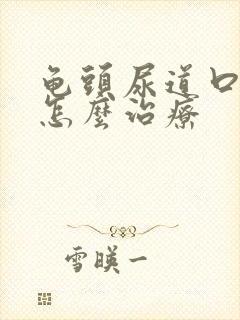 龟頭尿道口
怎麼治療
雪暎一